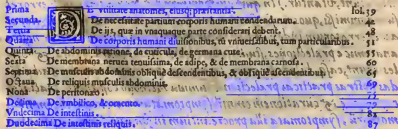 Prima D E vtilitate anatomes, eiusq; præstantia. fol. 39
Secunda. De necessitate partium corporis humani condendarum. 42
Tertia De ijs, que in vnaquaque parte considerari debent. 48
Quarta De corporis humani diuisionibus, tũ vniuersalibus, tum particularibus. 51
Quinta. De abdominis regione, de cuticula, de germana cute. 51
Sexta De membrana neruea tenuissima, de adipe, & de membrana carnosa. 60
Septima De musculis abdominis oblique descendentibus, & oblique ascendentibus. 65
Octaua De reliquis musculis abdominis. 69
Nona De peritonæo.
Decima De vmbilico, & omento.
Vndecima De intestinis. 81
Duodecima De intestinis reliquis. 87